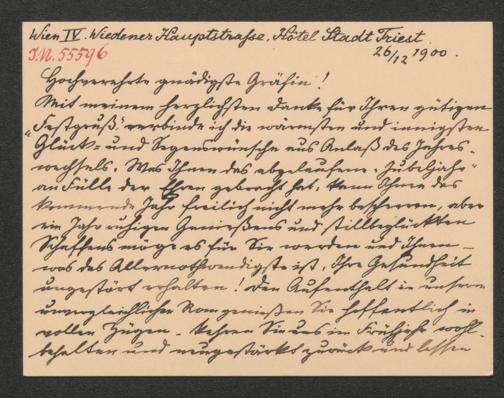 Wien IV. Wiedener Hauptstrasse, Hôtel Stadt Triest
26/12 1900.
I.N. 55596
Hochverehrte gnädigste Gräfin!
Mit meinem herzlichsten Danke für Ihren gütigen
„Festgruß“, verbinde ich die wärmsten und innigsten
Glück- und Segenswünsche aus Anlaß des Jahres-
wechsels. Was Ihnen das abgelaufene „Jubeljahr“
an Fülle der Ehren gebracht hat, kann Ihnen das
kommende Jahr freilich nicht mehr bescheren, aber
ein Jahr ruhigen Genießens und stillbeglückten
Schaffens möge es für Sie werden und Ihnen –
was das Allernothwendigste ist, Ihre Gesundheit
ungestört erhalten! Den Aufenthalt in unserm
unvergleichlichen Rom genießen Sie hoffentlich in
vollen Zügen. Kehren Sie uns im Frühjahr wohl-
behalten und neugestärkt zurück und lassen